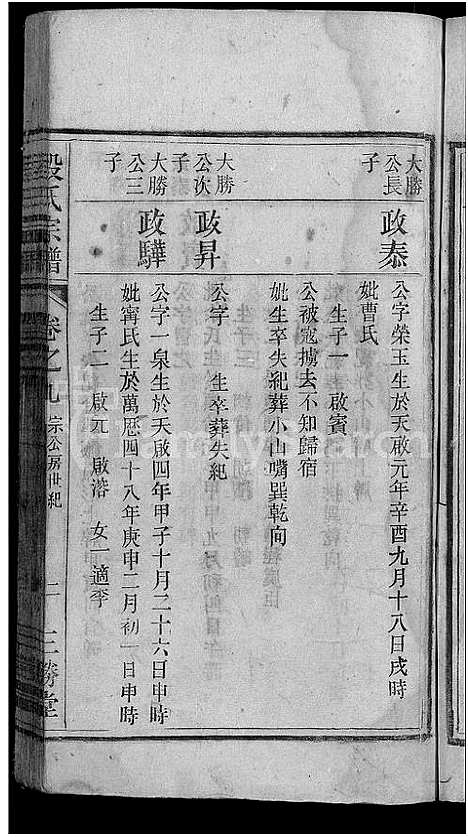 大勝公長子
政泰
公字榮玉生於天啟元年辛酉九月十八日戌時
妣曹氏
生子一 啟賓
公被寇擄去不知歸宿
妣生卒失紀葬小山嘴巽乾向
大勝公次子
政昇
公字 生卒葬失紀
大勝公三子
政驊
公字一泉生於天啟四年甲子十月二十六日申時
妣甯氏生於萬厯四十八年庚申二月初一日申時
生子二 啟元 啟溶 女一適李
段氏宗譜 卷之九 宗公房世紀 二 三勝堂